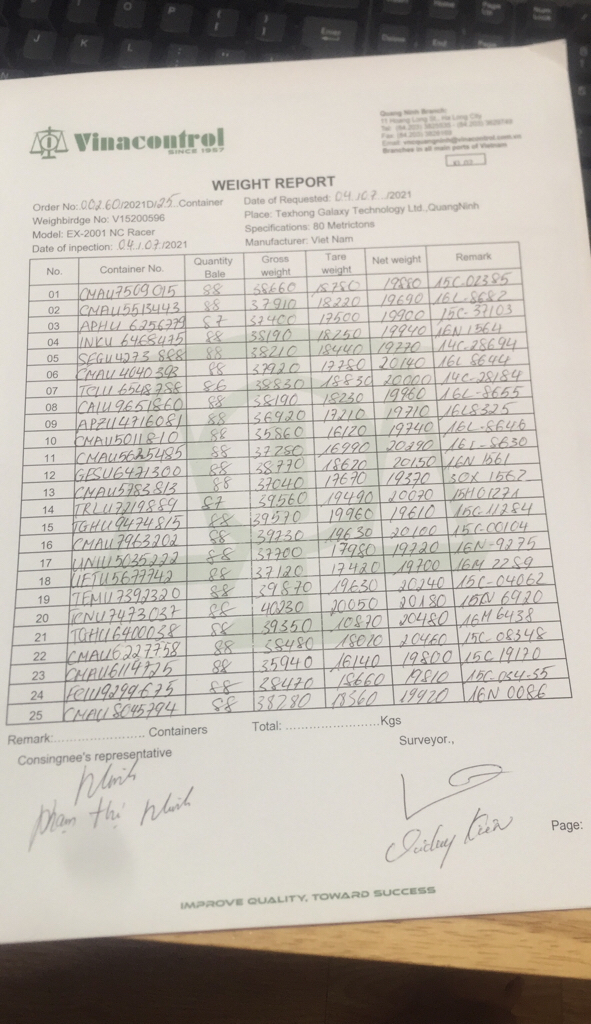 Vinacontrol
SINCE 1957
Quang Ninh Branch:
Branches in all main parts of Vietnam
WEIGHT REPORT
Order No: 00260/2021D/25 Container
Date of Requested: 04/07/2021
Weighbirdge No: V15200596
Place: Texhong Galaxy Technology Ltd.,QuangNinh
Model: EX-2001 NC Racer
Specifications: 80 Metrictons
Date of inpection: 04/07/2021
Manufacturer: Viet Nam
No. Container No. Quantity Bale Gross weight Tare weight Net weight Remark
01 CMAU7509015 88 38660 18780 19880 15C-02385
02 CMAU5513443 88 37910 18220 19690 16L-8682
03 APHU 6256779 87 37400 17500 19900 15C-37103
04 INKU 6468475 88 38190 18250 19940 16N 1564
05 SEGU4273 888 88 38210 18440 19770 14C-28694
06 CMAU 4040393 88 37920 17780 20140 16L 8644
07 TCLU 6548788 86 38830 18830 20000 14C-28184
08 CAIU9651860 88 38190 18230 19960 16L-8665
09 APZU4716081 88 36920 17210 19710 16L8325
10 CMAU5011810 88 35860 16120 19740 16L-8646
11 CMAU5625485 88 37280 16990 20290 16L-8630
12 GESU6471300 88 38770 18620 20150 16N 1561
13 CMAU5783813 88 37040 17670 19370 30X 1562
14 TRLU7219889 87 39560 19490 20070 15H01271
15 TGHU9474815 88 39570 19960 19610 15C-11284
16 CMAU7963202 88 39730 19630 20100 15C-00104
17 UNIU5035222 88 37700 17980 19720 16N-9275
18 UETU5677742 88 37120 17420 19700 16M 2289
19 TEMU7392320 88 39870 19630 20240 15C-04062
20 RNU7473037 88 40230 20050 20180 15N 6920
21 TGHU6400038 88 39350 18870 20480 16M 6438
22 CMAU6227758 88 38480 18020 20460 15C-08348
23 CMAU6119725 88 35940 16140 19800 15C 19170
24 FCIU9299675 88 38470 18660 19810 15C-034-55
25 CMAU8045794 88 38280 18360 19920 16N 0086
Remark:........................ Containers Total: ........................Kgs
Consingnee's representative
Surveyor.,
Minh
Phạm thị Minh
Page:
IMPROVE QUALITY, TOWARD SUCCESS